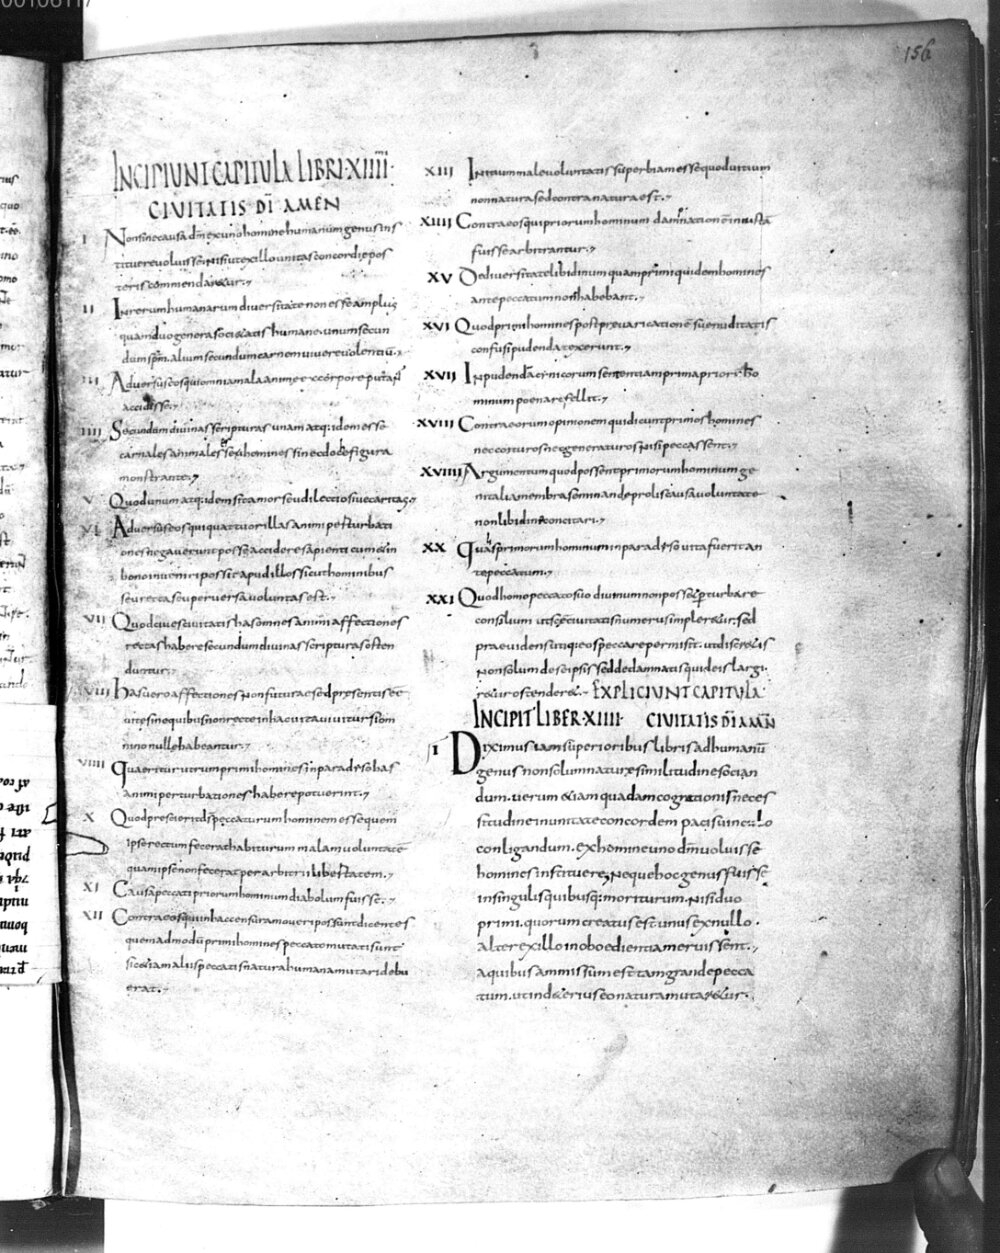 156
INCIPIUNT CAPITULA LIBRI·XIIII·
CIUITATIS DI AMEN
I Non sine causa dm ex uno homine humanum genus ins
tituere uoluisse nisi ut ex illo unitas concordie pos
teris commendaretur;
II In rerum humanarum diuersitate non esse amplius
quam duo genera societatis humane unum secun
dum spm. alium secundum carnem uiuere uolentiu;
III Aduersus eos qui omnia mala anime ex corpore putant
accidisse;
IIII Secundum diuinas scripturas unum atq: idem esse
carnales animales
monstrante;
V Quod unum atq: idem sit amor seu dilectio siue caritas;
VI Aduersus eos qui quattuor illas animi perturbati
ones negauerunt posse accidere sapienti cum & in
bono inueniri possit apud illos sicut hominibus
seu recta seu peruersa uoluntas est;
VII Quod ciues ciuitatis has omnes animi affectiones
rectas habere secundum diuinas scripturas osten
duntur;
VIII Has uero affectiones non future sed presentis ee
uite sine quibus non recte in hac uita uiuitur si om
nino nulle habeantur;
VIIII Quaeritur utrum primi homines in paradiso has
animi perturbationes habere potuerint;
X Quod prescierit ds peccaturum hominem esse quem
ipse rectum fecerat habiturum malam uoluntate
quam ipse non fecerat per arbitrii libertatem;
XI Causa peccati priorum hominum diabolum fuisse;
XII Contra eos qui in hac censura moueri possunt dicentes
quemadmodu primi homines peccato mutati sunt
sic etiam aliis peccatis natura humana mutari debu
erat;
XIII Initium male uoluntatis superbiam esse quod uitium
non natura sed contra natura est;
XIIII Contra eos qui priorum hominum damnatione iniusta
fuisse arbitrantur;
XV De diuersitate libidinum quam primi quidem homines
ante peccatum non habebant;
XVI Quod primi homines post preuaricatione sue nuditatis
confusi pudenda texerunt;
XVII Inpudenda cinicorum sententiam prima priorum ho
minum poena refellit;
XVIII Contra eorum opinionem qui dicunt primos homines
nec coituros nec generaturos nisi peccassent;
XVIIII Argumentum quod possent primorum hominum ge
nitalia membra seminande prolis causa uoluntate
non libidine concitari;
XX Qualis primorum hominum in paradiso uita fuerit an
te peccatum;
XXI Quod homo peccato suo diuinum non posset perturbare
consilium ut sce ciuitatis numerus impleretur. sed
praeuidens utique os peccare permisit. ut discretis
non solum de se ipsis sed de damnatis quid eis largi
retur ostenderet; EXPLICIUNT CAPITULA·
INCIPIT LIBER·XIIII· CIUITATIS DI AMEN
I Diximus iam superioribus libris ad humanu
genus non solum nature similitudine socian
dum. uerum etiam quadam cognationis neces
situdine in unitate concordem pacis uinculo
conligandum. ex homine uno dm uoluisse
homines instituere; neque hoc genus fuisse
in singulis quibusq: moriturum. nisi duo
primi. quorum creatus est unus ex nullo·
alter ex illo inoboedientia meruissent;
a quibus ammissum est tam grande pecca
tum. ut in deterius eo natura mutaretur·